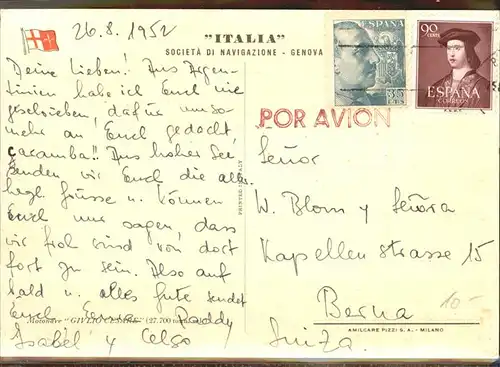 26.8.1952
"ITALIA"
SOCIETÀ DI NAVIGAZIONE - GENOVA
Meine Lieben! Aus Argen-
tinien habe ich Euch nie
geschrieben, dafür umso-
mehr an Euch gedacht,
caramba!! Aus hoher See
senden wir Euch die aller
herzl. Grüsse u. können
Euch nur sagen, dass
wir froh sind von dort
fort zu sein. Also auf
bald u. alles Gute sendet
Euch Daddy
Isabel y
Motonave "GIULIO CESARE" (27.700 tonn.)
PRINTED IN ITALY
ESPAÑA
35 CTS
CORREOS
90 CENTS
ESPAÑA
CORREOS
POR AVION
Señor
W. Blom y Señora
Kapellenstrasse 15
Berna
10-
AMILCARE PIZZI S.A. - MILANO
Suiza.